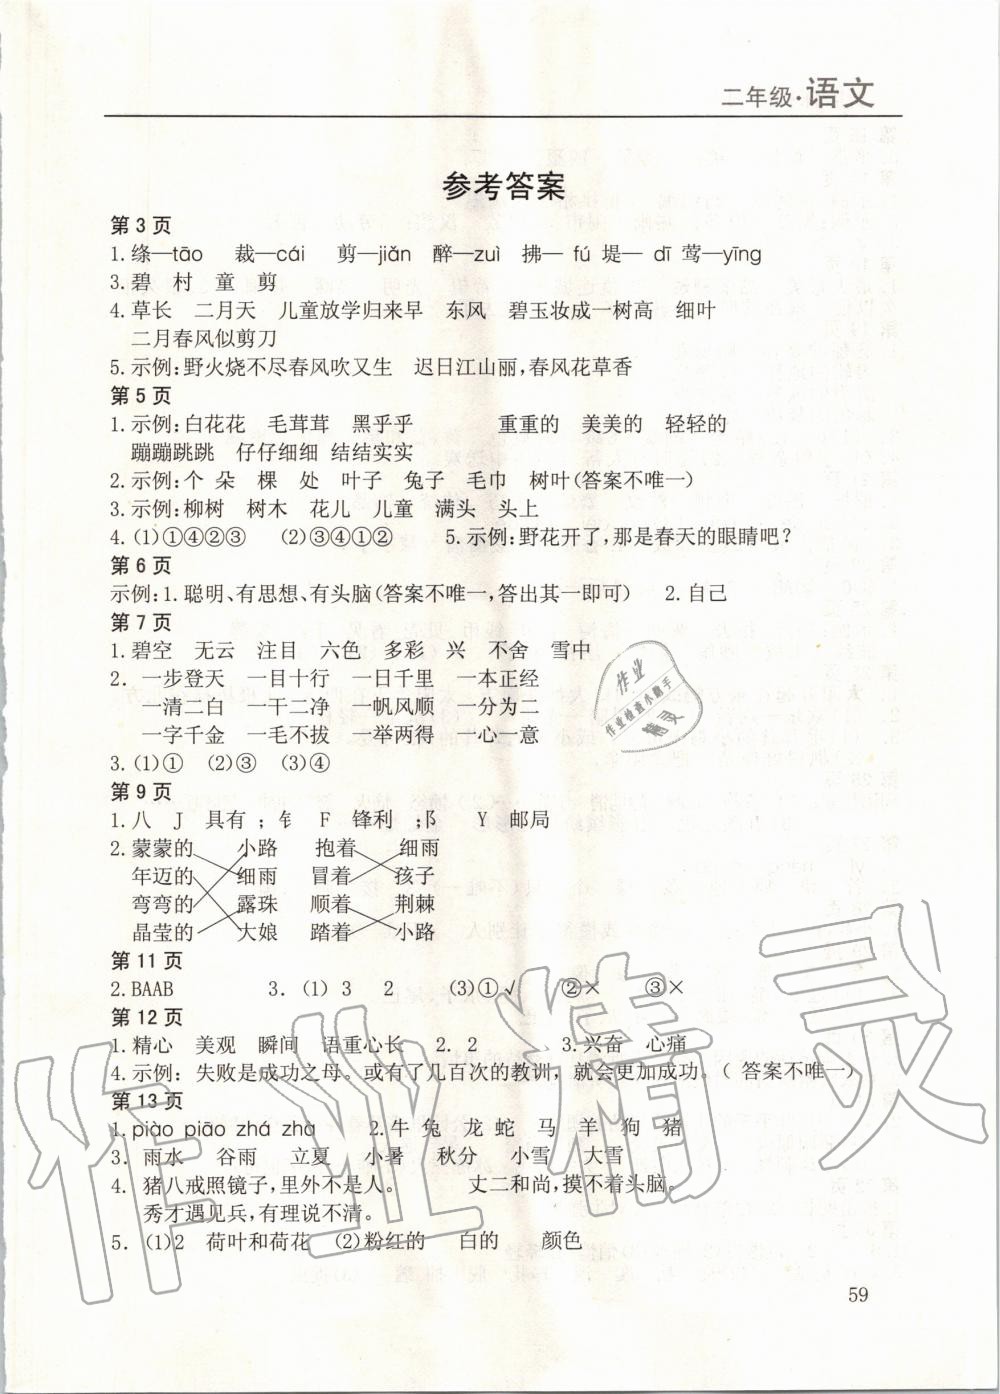 二年级·语文
参考答案
第3页
1.绦—tāo 裁—cái 剪—jiǎn 醉—zuì 拂—fú 堤—dī 莺—yīng
3.碧 村 童 剪
4.草长 二月天 儿童放学归来早 东风 碧玉妆成一树高 细叶
二月春风似剪刀
5.示例:野火烧不尽春风吹又生 迟日江山丽,春风花草香
第5页
1.示例:白花花 毛茸茸 黑乎乎 重重的 美美的 轻轻的
蹦蹦跳跳 仔仔细细 结结实实
2.示例:个 朵 棵 处 叶子 兔子 毛巾 树叶(答案不唯一)
3.示例:柳树 树木 花儿 儿童 满头 头上
4.(1)①④②③ (2)③④①② 5.示例:野花开了,那是春天的眼睛吧?
第6页
示例:1.聪明、有思想、有头脑(答案不唯一,答出其一即可) 2.自己
第7页
1.碧空 无云 注目 六色 多彩 兴 不舍 雪中
2.一步登天 一目十行 一日千里 一本正经
一清二白 一干二净 一帆风顺 一分为二
一字千金 一毛不拔 一举两得 一心一意
3.(1)① (2)③ (3)④
第9页
1.八 J 具有 ;钅 F 锋利 ;阝 Y 邮局
2.蒙蒙的 小路 抱着 细雨
年迈的 细雨 冒着 孩子
弯弯的 露珠 顺着 荆棘
晶莹的 大娘 踏着 小路
第11页
2.BAAB 3.(1)3 2 (3)①√ ②× ③×
第12页
1.精心 美观 瞬间 语重心长 2.2 3.兴奋 心痛
4.示例:失败是成功之母。或有了几百次的教训,就会更加成功。(答案不唯一)
第13页
1.piào piāo zhá zha 2.牛 兔 龙 蛇 马 羊 狗 猪
3.雨水 谷雨 立夏 小暑 秋分 小雪 大雪
4.猪八戒照镜子,里外不是人。 丈二和尚,摸不着头脑。
秀才遇见兵,有理说不清。
5.(1)2 荷叶和荷花 (2)粉红的 白的 颜色
59
作业
作业检查小助手
精灵
作业精灵